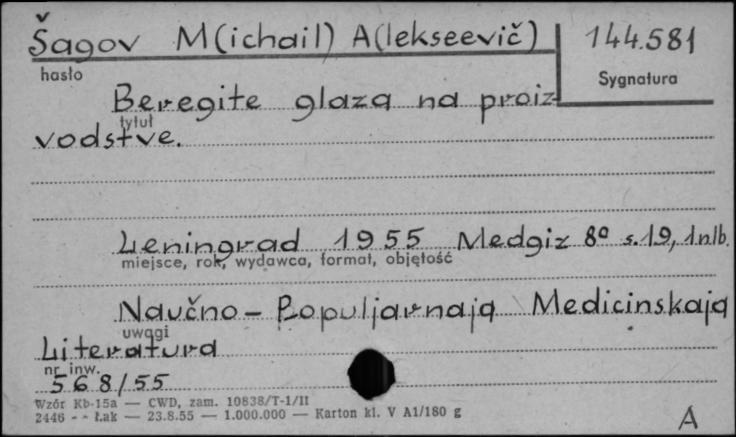 Šagov M(ichail) A(lekseevič) 144.581
hasło Sygnatura
Beregite glaza na proiz-
tytuł
vodstve.
Leningrad 1955 Medgiz 8° s.19, 1 nlb.
miejsce, rok, wydawca, format, objętość
Naučno - Populjarnaja Medicinskaja
uwagi
Literatura
nr inw.
568/55
Wzór Kb-15a — CWD, zam. 10838/T-1/II
2446 - - Łak — 23.8.55 — 1.000.000 — Karton kl. V A1/180 g
A